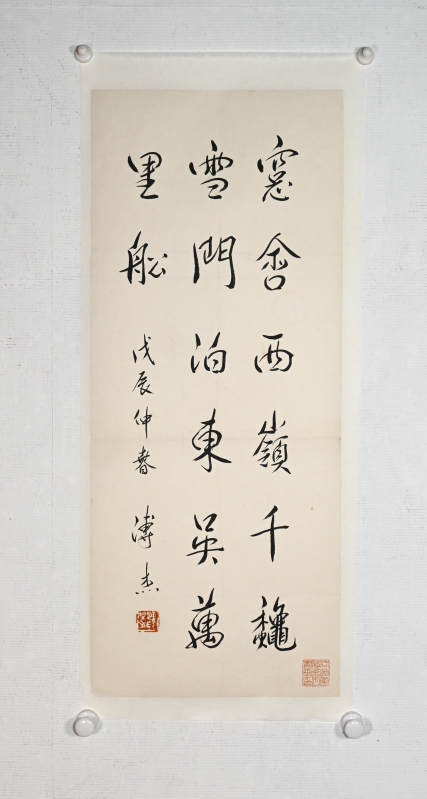 窓含西嶺千龝
雪門泊東吳萬
里舩
戊辰仲春 溥杰